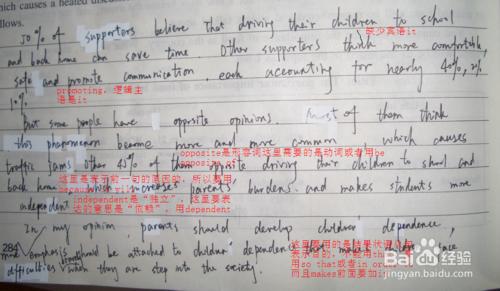 which causes a heated discu
llows.
50% of supporters believe that driving their children to school
缺少宾语it
and back home can save time. Other supporters think more comfortable,
safe and promote communication, each accounting for nearly 40%,
promoting,逻辑主
语是it
10%.
But some people have opposite opinions. most of them think
this phenomenon become more and more common which causes
opposite是形容词这里需要的是动词或者用be
traffic jams. Other 45% of them opposite driving their children to school and
这里是表示前一句的原因的,所以要用
back home which increases parents' burdens. and makes students more
independent是“独立”,这里要表
independent
达的意思是“依赖”,用dependent
In my opinion, parents should develop children dependence,
284
emphasis should be attached to children' dependence that make children face
so that或者in order
difficulties when they are step into the society.
而且makes前面要加
Baidu 经验
jingyan.baidu.com